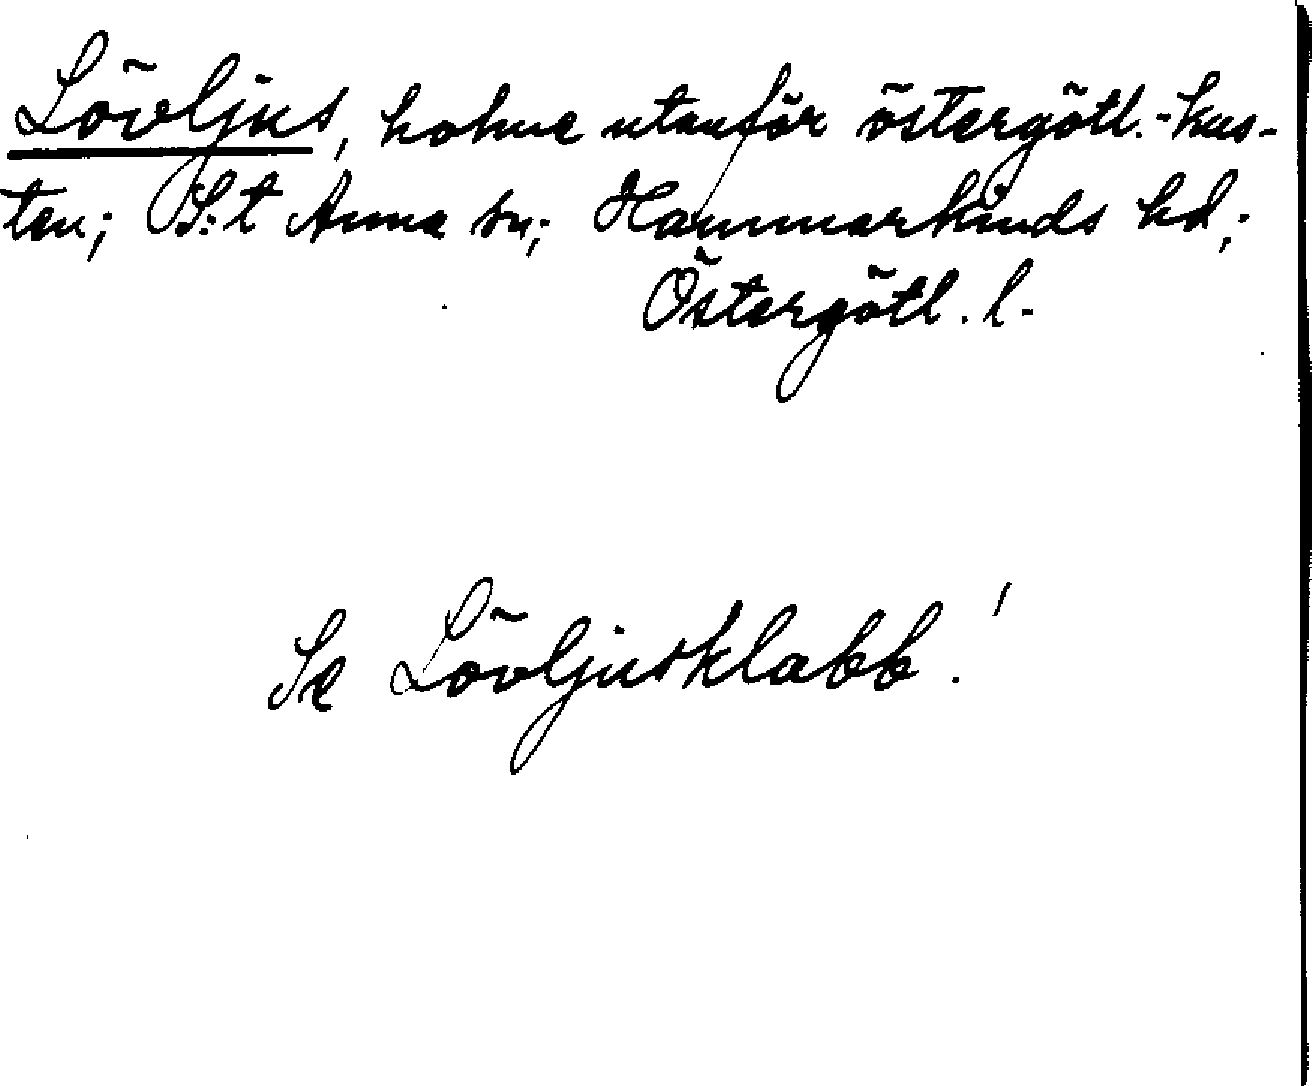 Lövljus, holme utanför östergötl.-kus-
ten; S:t Anna sn; Hammarkinds hd;
Östergötl. l.
Se Lövljusklabb!